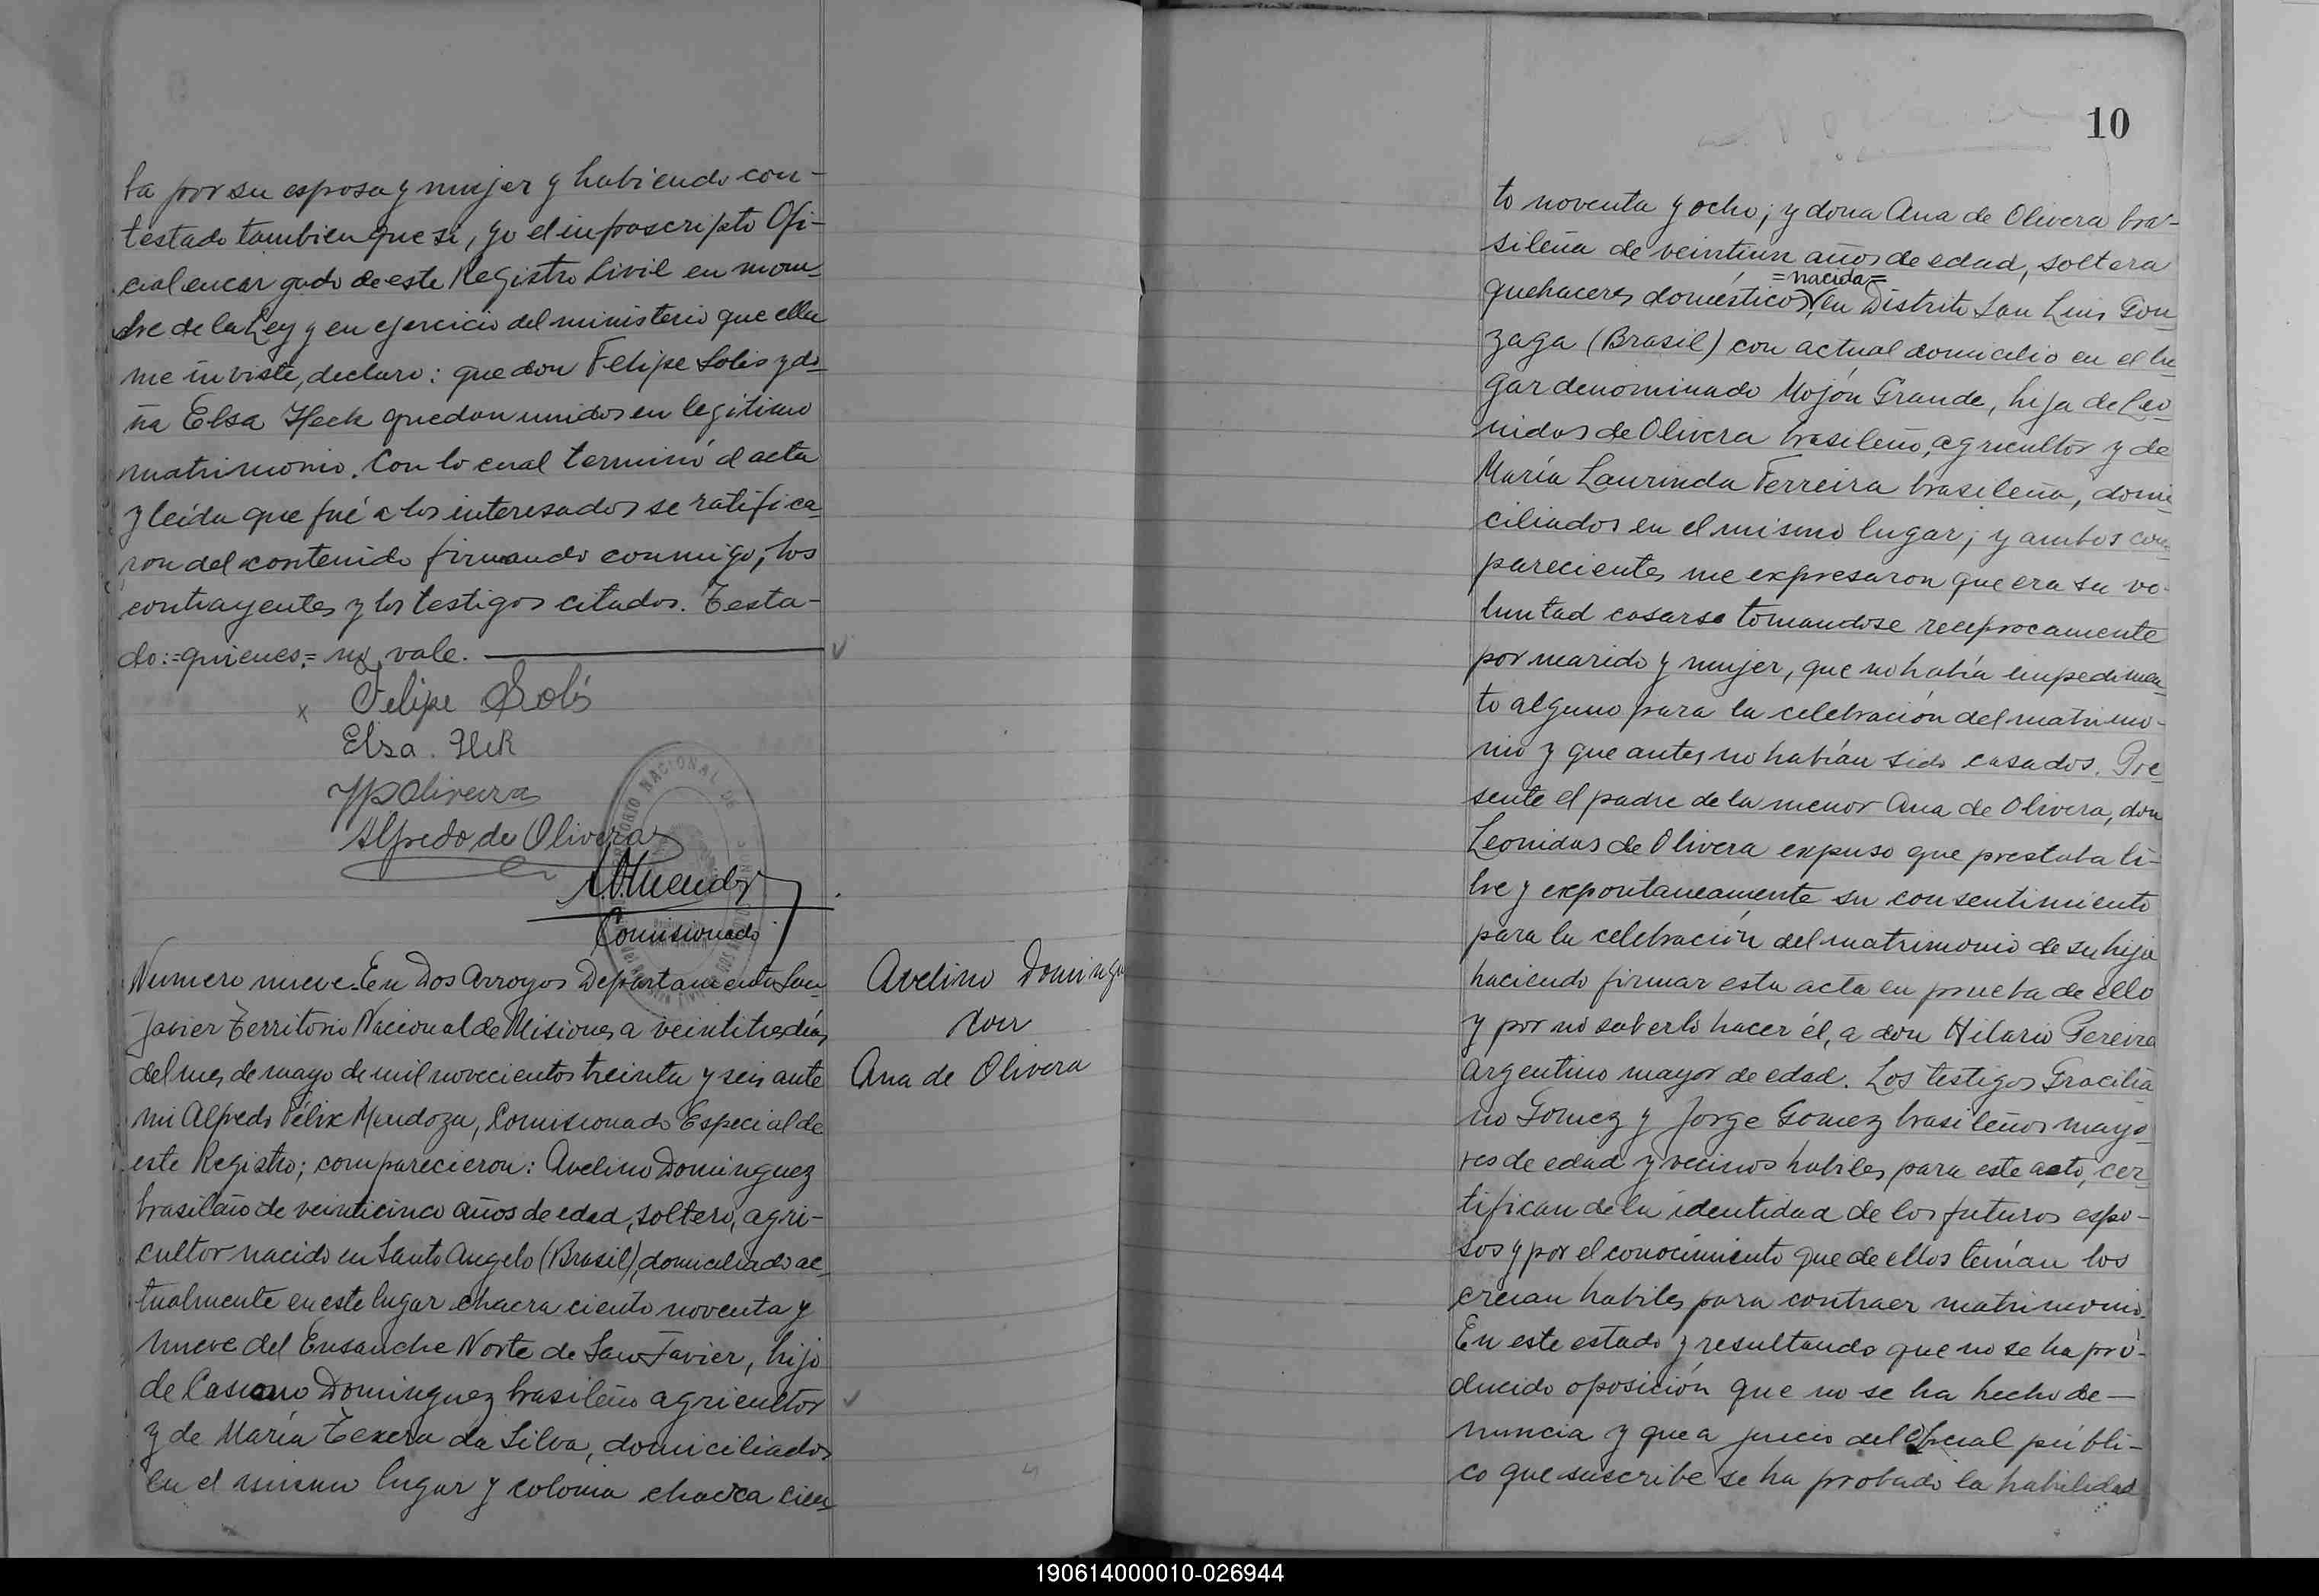 ba por su esposa y mujer y habiendo con-
testado tambien que si, yo el infrascripto Ofi-
cial encargado de este Registro Civil en nom-
bre de la Ley y en ejercicio del ministerio que ella
me inviste, declaro: que don Felipe Solis y do-
ña Elsa Heck quedan unidos en legitimo
matrimonio. Con lo cual terminó el acta
y leida que fué a los interesados se ratifica-
ron del contenido firmando conmigo, los
contrayentes y los testigos citados. Testa-
do:=quienes,= no vale.
x Felipe Solis
Elsa. Heck
Oliveira
Alfredo de Olivera
Comisionado
Numero nueve. En Dos Arroyos Departamento San
Javier Territorio Nacional de Misiones a veintitres días
del mes de mayo de mil novecientos treinta y seis ante
mi Alfredo Félix Mendoza, Comisionado Especial de
este Registro; comparecieron: Avelino Dominguez
brasileño de veinticinco años de edad, soltero, agri-
cultor nacido en Santo Angelo (Brasil), domiciliado ac-
tualmente en este lugar chacra ciento noventa y
nueve del Ensanche Norte de San Javier, hijo
de Casiano Dominguez brasileño agricultor
y de María Texera da Silva, domiciliados
en el mismo lugar y colonia chacra cien-
Avelino Domingu
con
Ana de Olivera
10
to noventa y ocho; y dona Ana de Olivera bra-
sileña de veintiun años de edad, soltera
=nacida=
quehaceres domésticos, en Distrito San Luis Gon-
zaga (Brasil) con actual domicilio en el lu-
gar denominado Mojón Grande, hija de Leo-
nidas de Olivera brasileño, agricultor y de
María Laurinda Ferreira brasileña, domi-
ciliados en el mismo lugar; y ambos com-
parecientes me expresaron que era su vo-
luntad casarse tomandose reciprocamente
por marido y mujer, que no había impedimen-
to alguno para la celebración del matrimo-
nio y que antes no habían sido casados. Pre-
sente el padre de la menor Ana de Olivera, don
Leonidas de Olivera expuso que prestaba li-
bre y expontaneamente su consentimiento
para la celebración del matrimonio de su hija
haciendo firmar esta acta en prueba de ello
y por nó saberlo hacer él, a don Hilario Pereira
argentino mayor de edad. Los testigos Gracilia-
no Gomez y Jorge Gomez brasileños mayo-
res de edad y vecinos habiles para este acto, cer-
tifican de la identidad de los futuros espo-
sos y por el conocimiento que de ellos tenían los
creian habiles para contraer matrimonio.
En este estado y resultando que no se ha pro-
ducido oposición que no se ha hecho de-
nuncia y que a juicio del Oficial públi-
co que suscribe se ha probado la habilidad
190614000010-026944